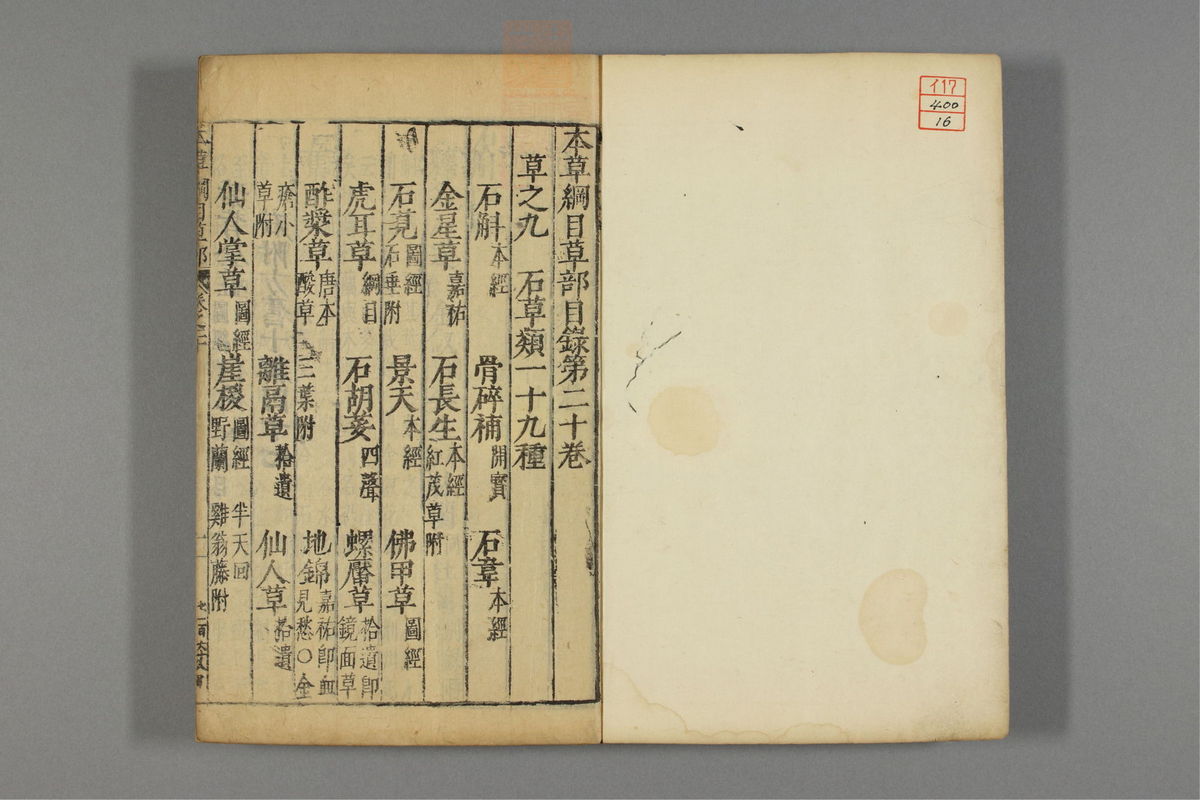 117
400
16
本草綱目草部目錄第二十卷
草之九　石草類一十九種
石斛 本經　骨碎補 開寶　石韋 本經
金星草 嘉祐　石長生 本經 紅茂草附
石莧 圖經 石垂附　景天 本經　佛甲草 圖經
虎耳草 綱目　石胡荽 四聲　螺厴草 拾遺即鏡面草
酢漿草 唐本 酸草 三葉附　地錦 嘉祐即血見愁○金
瘡小草附　離鬲草 拾遺　仙人草 拾遺
仙人掌草 圖經　崖椶 圖經 野蘭 半天回 雞翁藤附